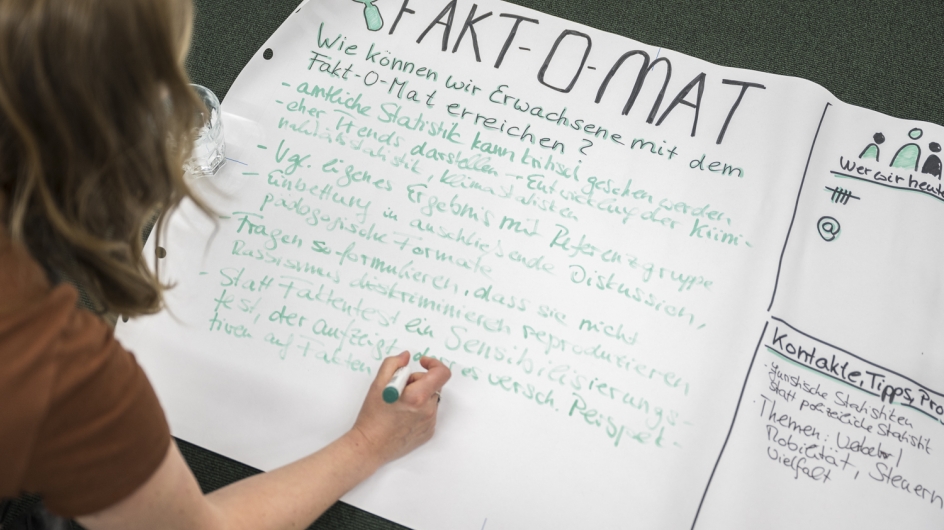 FAKT-O-MAT
Wie können wir Erwachsene mit dem
Fakt-O-Mat erreichen?
- amtliche Statistik kann kritisch gesehen werden
- eher Trends darstellen → Entwicklung der Krimi-
nalitätsstatistik, Klimastatistiken
- Vgl. eigenes Ergebnis mit Referenzgruppe
- Einbettung in anschließende Diskussion,
pädagogische Formate
- Fragen so formulieren, dass sie nicht
Rassismus diskriminieren reproduzieren
- Statt Faktentest ein Sensibilisierungs-
test, der aufzeigt, dass es versch. Perspek-
tiven auf Fakten
Wer wir heute
@
Kontakte, Tipps, Pro
· juristische Statistiken
statt polizeiliche Statistik
· Themen:
Mobilität, Steuern
Vielfalt